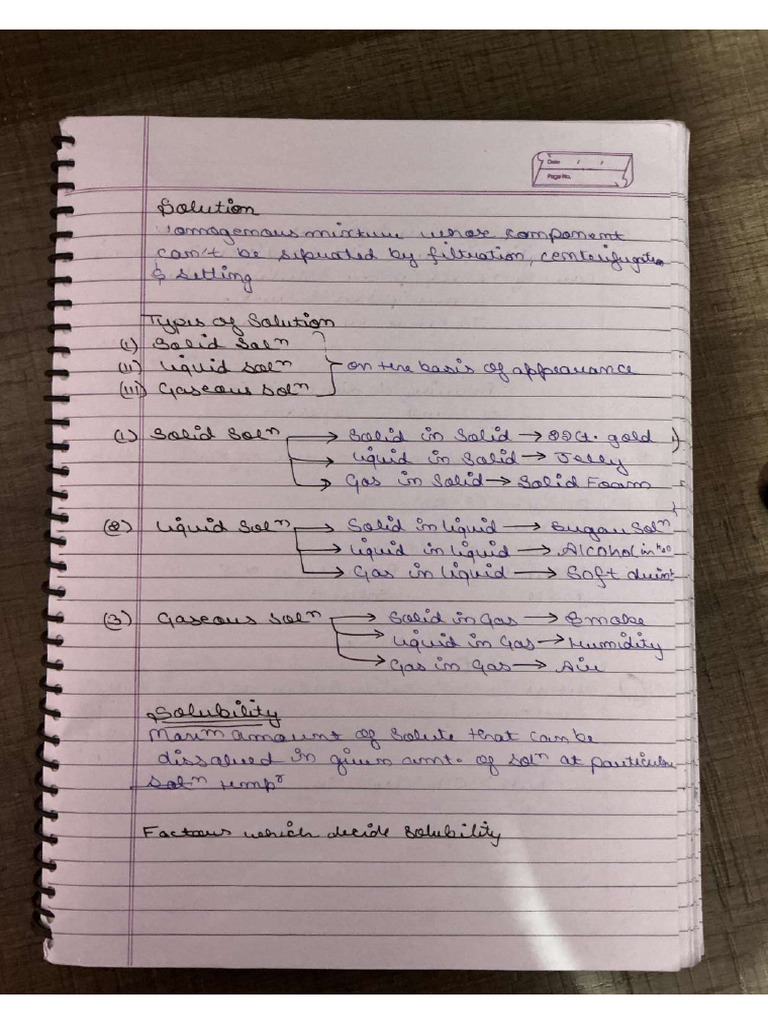 Date / /
Page No.
Solution
omogenous mixture whose component
can't be sepuated by filtration, centerifugation
& setting
Types of Solution
(i) Solid Solⁿ
(ii) Liquid solⁿ on the basis of appearance
(iii) Gaseous solⁿ
(1) Solid Solⁿ → Solid in Solid → 22ct. gold
→ Liquid in Solid → Jelly
→ Gas in Solid → Solid Foam
(2) Liquid Solⁿ → Solid in liquid → Sugar Solⁿ
→ Liquid in liquid → Alcohol in H₂O
→ Gas in liquid → Soft drink
(3) Gaseous Solⁿ → Solid in Gas → Smoke
→ Liquid in Gas → Humidity
→ Gas in Gas → Air
Solubility
Maxᵐ amount of solute that can be
dissolved in given amt. of solⁿ at particular
solⁿ tempʳ
Factors which decide solubility